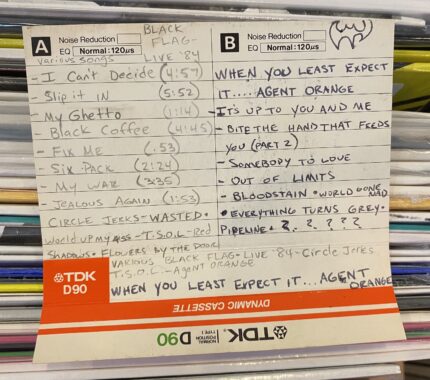 A
Noise Reduction
EQ Normal:120µs
BLACK
FLAG-
various songs LIVE '84
- I Can't Decide (4:57)
- Slip it IN (5:52)
- My Ghetto (1:14)
- Black Coffee (4:45)
- Fix Me (.53)
- Six Pack (2:24)
- My WAR (3:35)
- Jealous Again (1:53)
CIRCLE JERKS-WASTED•
World up my ass-T.S.O.L-Red
Shadows• Flowers by the Door
B
Noise Reduction
EQ Normal:120µs
WHEN YOU LEAST EXPECT
IT.... AGENT ORANGE
- IT'S UP TO YOU AND ME
- BITE THE HAND THAT FEEDS
YOU (PART 2)
- SOMEBODY TO LOVE
- OUT OF LIMITS
- BLOODSTAIN • WORLD GONE
MAD
• EVERYTHING TURNS GREY•
PIPELINE • ?. ? ? ? ?
VARIOUS BLACK FLAG-LIVE '84-Circle Jerks
T.S.O.L.-Agent ORANGE
TDK
D90
WHEN YOU LEAST EXPECT IT... AGENT
ORANGE
DYNAMIC CASSETTE
TDK. NORMAL POSITION TYPE I D90